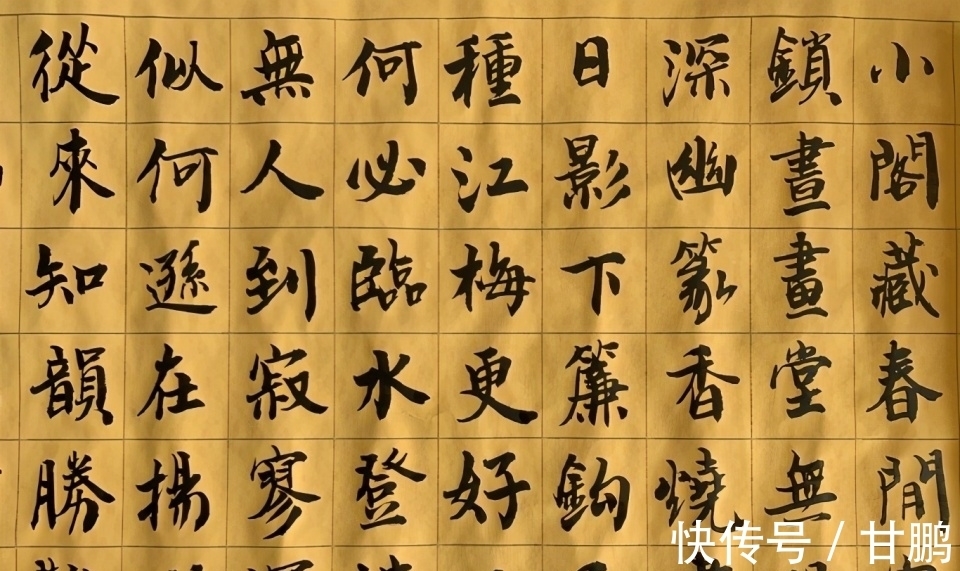 小閣藏春閒
鎖晝畫堂無
深幽篆香燒
日影下簾鉤
種江梅更好
何必臨水登
無人到寂寥
似何遜在揚
從來知韻勝
快传号 / 甘鹏